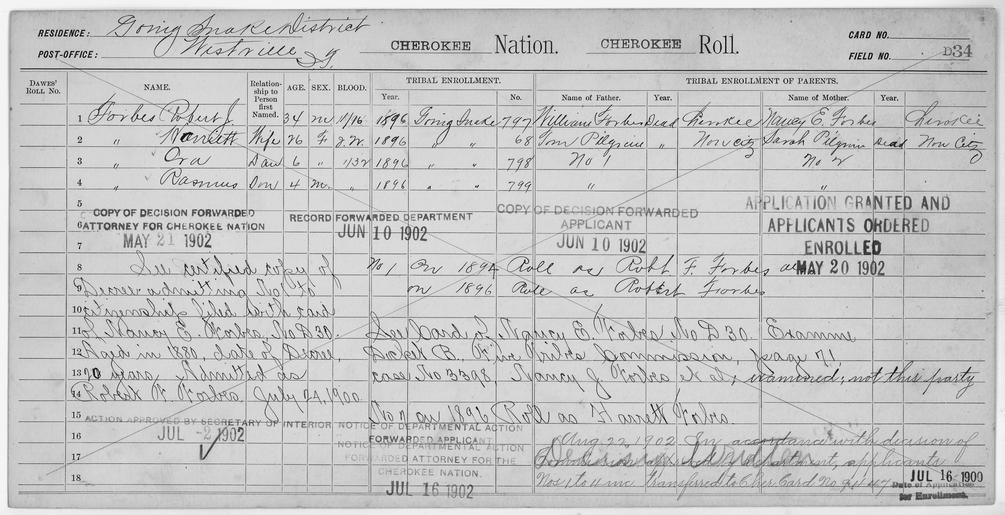 RESIDENCE: Going Snake District
POST-OFFICE: Westville I.T.
CHEROKEE Nation. CHEROKEE Roll.
CARD NO.
FIELD NO. D34
DAWES' ROLL NO. NAME. Relationship to Person first Named. AGE. SEX. BLOOD. TRIBAL ENROLLMENT. Year. No. TRIBAL ENROLLMENT OF PARENTS. Name of Father. Year. Name of Mother. Year.
1 Forbes Robert J. 34 m 11/16 1896 Going Snake 797 William Forbes Dead Cherokee Nancy E. Forbes Cherokee
2 " Harriett Wife 26 F J.W. 1896 " " 68 Tom Pilgrim " Non citz Sarah Pilgrim Dead Non Citz
3 " Ora Dau 6 " 11/32 1896 " " 798 No 1 No 2
4 " Rasmus Son 4 m. " 1896 " " 799 " "
5
6
7
COPY OF DECISION FORWARDED
ATTORNEY FOR CHEROKEE NATION
MAY 21 1902
RECORD FORWARDED DEPARTMENT
JUN 10 1902
COPY OF DECISION FORWARDED
APPLICANT
JUN 10 1902
APPLICATION GRANTED AND
APPLICANTS ORDERED
ENROLLED
MAY 20 1902
8 See certified copy of No 1 on 1894 Roll as Robt F. Forbes
9 Decree admitting No 1 to on 1896 Roll as Robert Forbes
10 citizenship filed with card
11 of Nancy E. Forbes, No D30. See Card of Nancy E Forbes No D 30. Examine
12 Aged in 1880, date of Decree, Docket B, Five Tribes Commission, page 71
13 20 years. Admitted as case No 3398, Nancy J Forbes et al; examined; not this party
14 Robert W. Forbes July 24, 1900
15 No 2 on 1896 Roll as Harrett Forbes.
16
17
18
ACTION APPROVED BY SECRETARY OF INTERIOR
JUL -2 1902
NOTICE OF DEPARTMENTAL ACTION
FORWARDED APPLICANT
NOTICE OF DEPARTMENTAL ACTION
FORWARDED ATTORNEY FOR THE
CHEROKEE NATION.
JUL 16 1902
Aug. 22, 1902 In accordance with decision of
Commission department, applicants
Nos 1 to 4 inc. transferred to Cher. Card No
JUL 16 1900
Date of Application
for Enrollment.